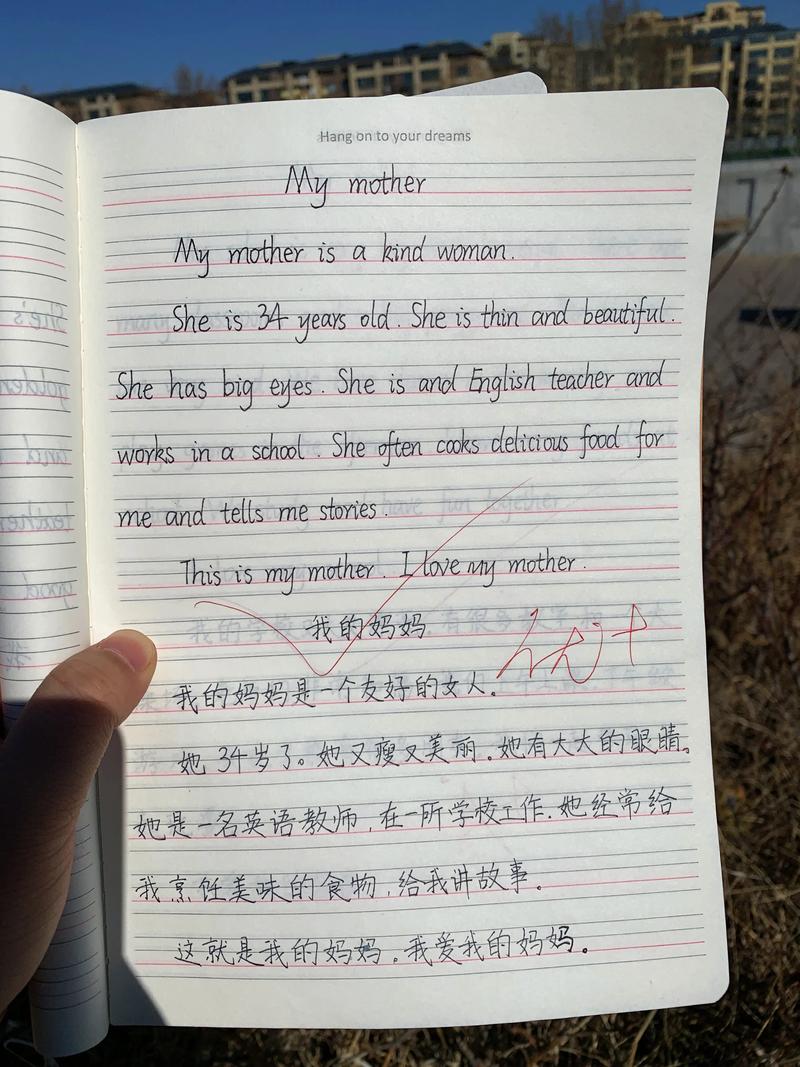 Hang on to your dreams
My mother
My mother is a kind woman.
She is 34 years old. She is thin and beautiful.
She has big eyes. She is and English teacher and
works in a school. She often cooks delicious food for
me and tells me stories.
This is my mother. I love my mother.
我的妈妈
我的妈妈是一个友好的女人。
她34岁了。她又瘦又美丽。她有大大的眼睛。
她是一名英语教师,在一所学校工作.她经常给
我烹饪美味的食物,给我讲故事。
这就是我的妈妈。我爱我的妈妈。
She's
golden
and
teacher
good